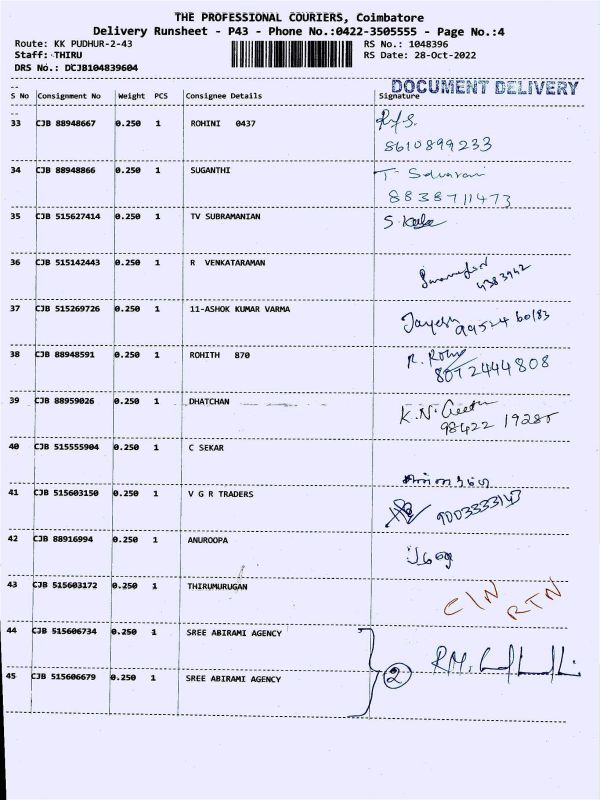 THE PROFESSIONAL COURIERS, Coimbatore
Delivery Runsheet - P43 - Phone No.:0422-3505555 - Page No.:4
Route: KK PUDHUR-2-43 RS No.: 1048396
Staff: THIRU RS Date: 28-Oct-2022
DRS No.: DCJB104839604
DOCUMENT DELIVERY
S No Consignment No Weight PCS Consignee Details Signature
33 CJB 88948667 0.250 1 ROHINI 0437
8610899233
34 CJB 88948866 0.250 1 SUGANTHI
8838711473
35 CJB 515627414 0.250 1 TV SUBRAMANIAN S.
36 CJB 515142443 0.250 1 R VENKATARAMAN
4383942
37 CJB 515269726 0.250 1 11-ASHOK KUMAR VARMA Jayesh 99524 60183
38 CJB 88948591 0.250 1 ROHITH 870 R.
8072444808
39 CJB 88959026 0.250 1 DHATCHAN K.N. Geetha
98422 19285
40 CJB 515555904 0.250 1 C SEKAR
41 CJB 515603150 0.250 1 V G R TRADERS 9003333143
42 CJB 88916994 0.250 1 ANUROOPA
43 CJB 515603172 0.250 1 THIRUMURUGAN C/N RTN
44 CJB 515606734 0.250 1 SREE ABIRAMI AGENCY
2 R.M.
45 CJB 515606679 0.250 1 SREE ABIRAMI AGENCY